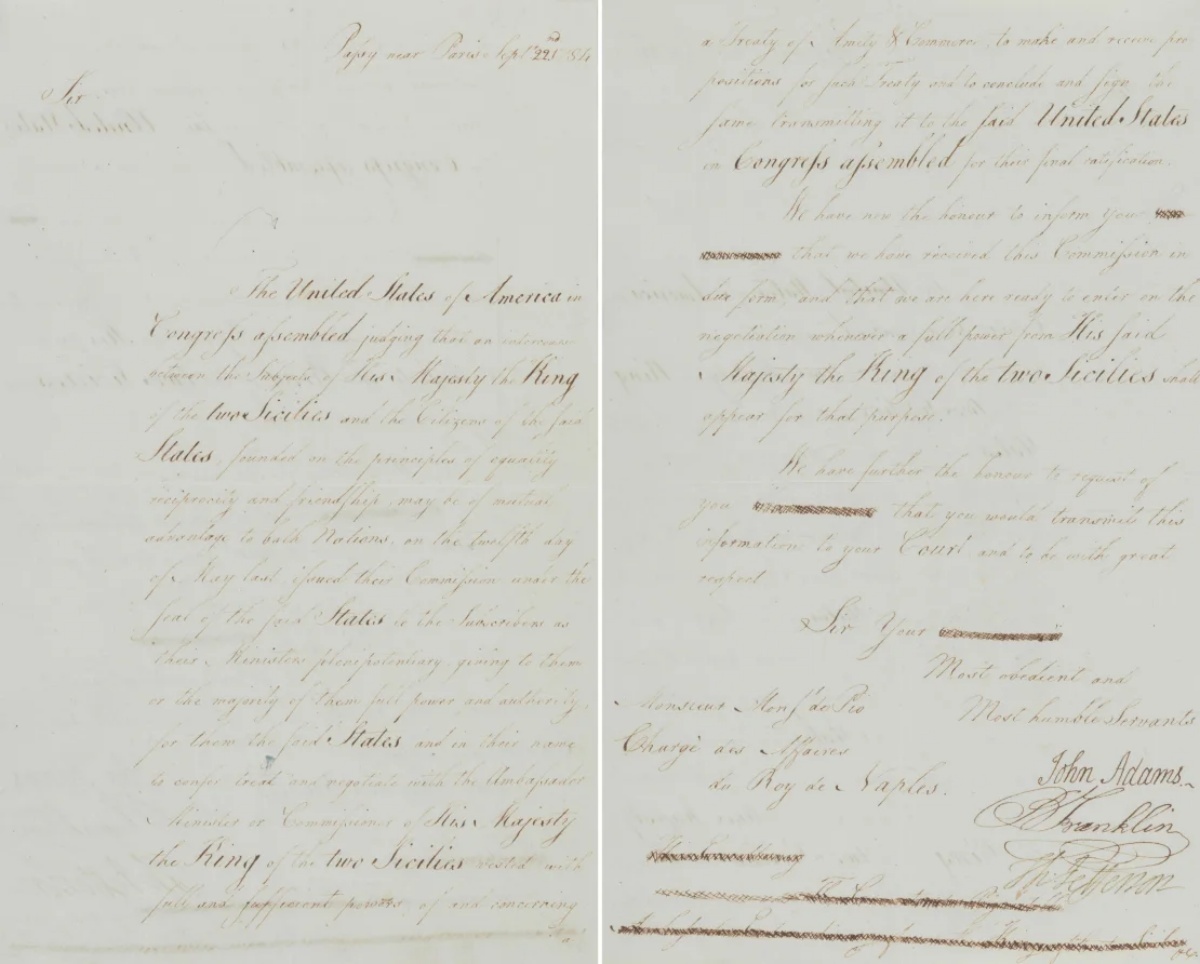 Passy near Paris Sept. 22d 1784
Sir
The United States of America in
Congress assembled judging that an intercourse
between the Subjects of His Majesty the King
of the two Sicilies and the Citizens of the said
States, founded on the principles of equality
reciprocity and friendship may be of mutual
advantage to both Nations, on the twelfth day
of May last issued their Commission under the
seal of the said States to the Subscribers as
their Ministers plenipotentiary, giving to them
or the majority of them full power and authority,
for them the said States and in their name
to confer treat and negotiate with the Ambassador
Minister or Commissioner of His Majesty
the King of the two Sicilies vested with
full and sufficient powers of and concerning
a Treaty of Amity & Commerce, to make and receive pro
positions for such Treaty and to conclude and sign the
same transmitting it to the said United States
in Congress assembled for their final ratification.
We have now the honour to inform your
that we have received this Commission in
due form, and that we are here ready to enter on the
negotiation whenever a full power from His said
Majesty the King of the two Sicilies shall
appear for that purpose.
We have further the honour to request of
you that you would transmit this
information to your Court and to be with great
respect
Sir Your
Most obedient and
Most humble Servants
Monsieur Monsr de Pio
Chargé des Affaires
du Roy de Naples.
John Adams.
B Franklin
Th Jefferson